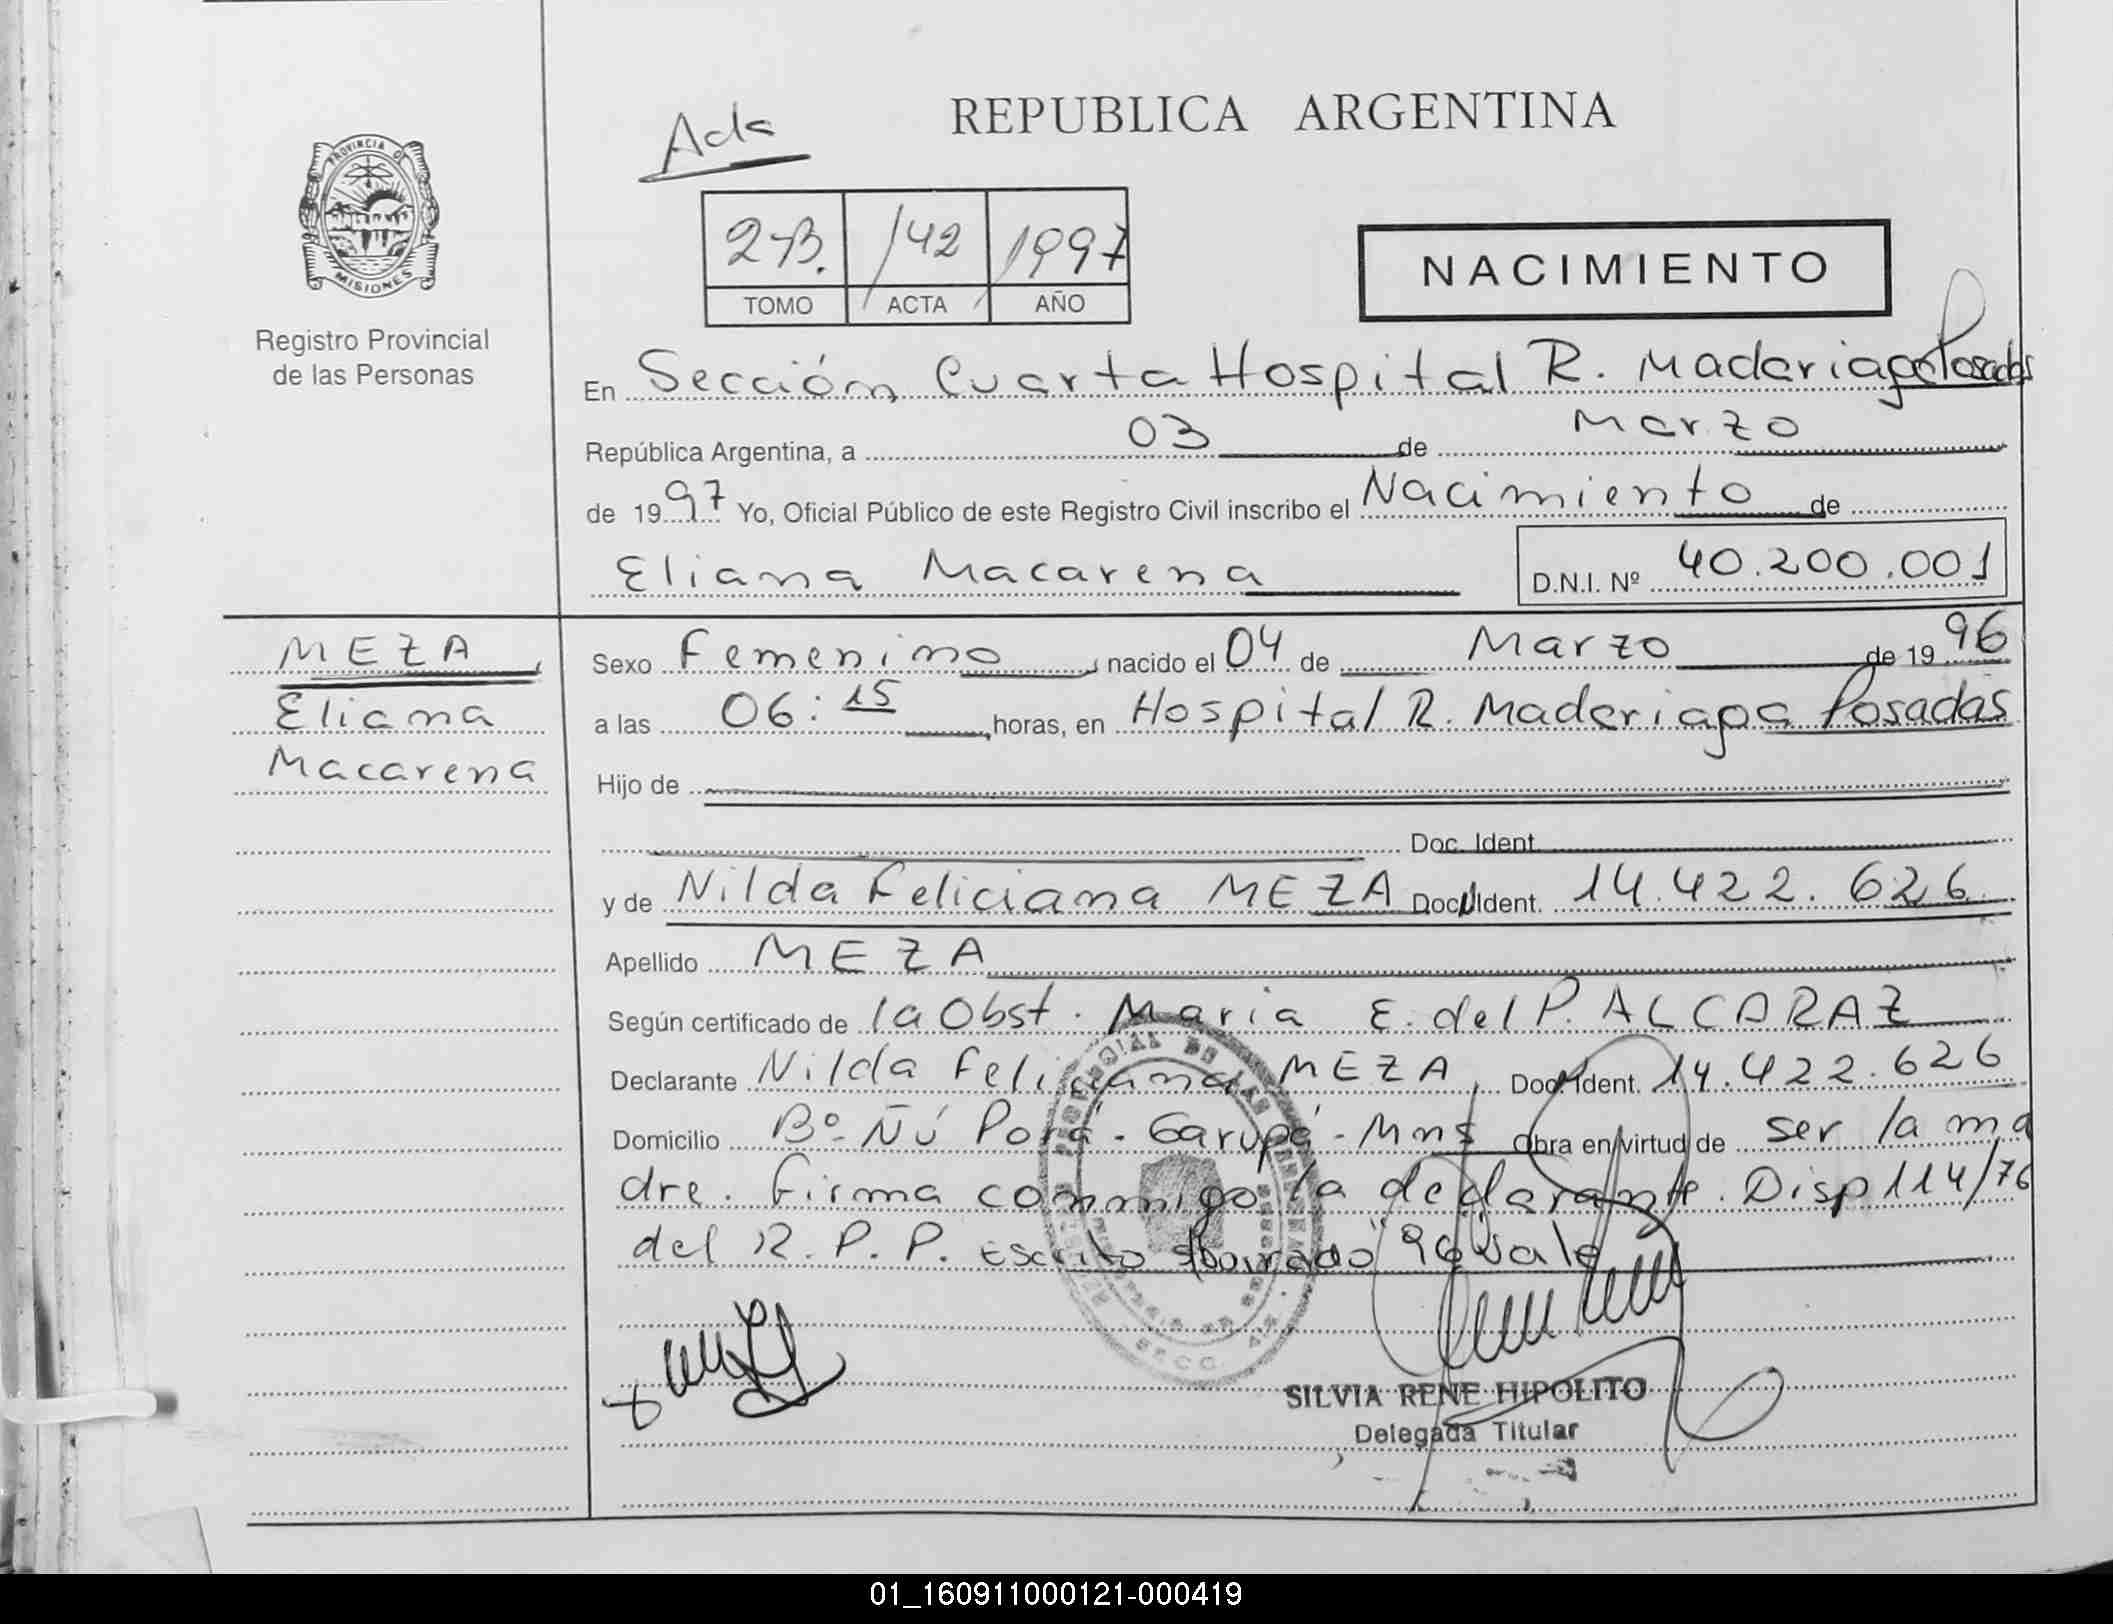 Acta
REPUBLICA ARGENTINA
PROVINCIA DE
MISIONES
2-B. 142 1997
TOMO ACTA AÑO
NACIMIENTO
Registro Provincial
de las Personas
En Sección Cuarta Hospital R. Madariaga Posadas
República Argentina, a 03 de Marzo
de 1997 Yo, Oficial Público de este Registro Civil inscribo el Nacimiento de
Eliana Macarena D.N.I. Nº 40.200.001
MEZA,
Eliana
Macarena
Sexo Femenino, nacido el 04 de Marzo de 1996
a las 06:15, horas, en Hospital R. Madariaga Posadas
Hijo de
Doc. Ident.
y de Nilda Feliciana MEZA Doc. Ident. 14.422.626
Apellido MEZA
Según certificado de la Obst. Maria E. del P. ALCARAZ
Declarante Nilda Feliciana MEZA, Doc. Ident. 14.422.626
Domicilio Bº- Ñú Porá - Garupá - Mnes Obra en virtud de ser la ma
dre. Firma conmigo la declarante. Disp 114/76
del R.P.P. Escrito s/borrado "96" vale
SILVIA RENE HIPOLITO
Delegada Titular
01_160911000121-000419